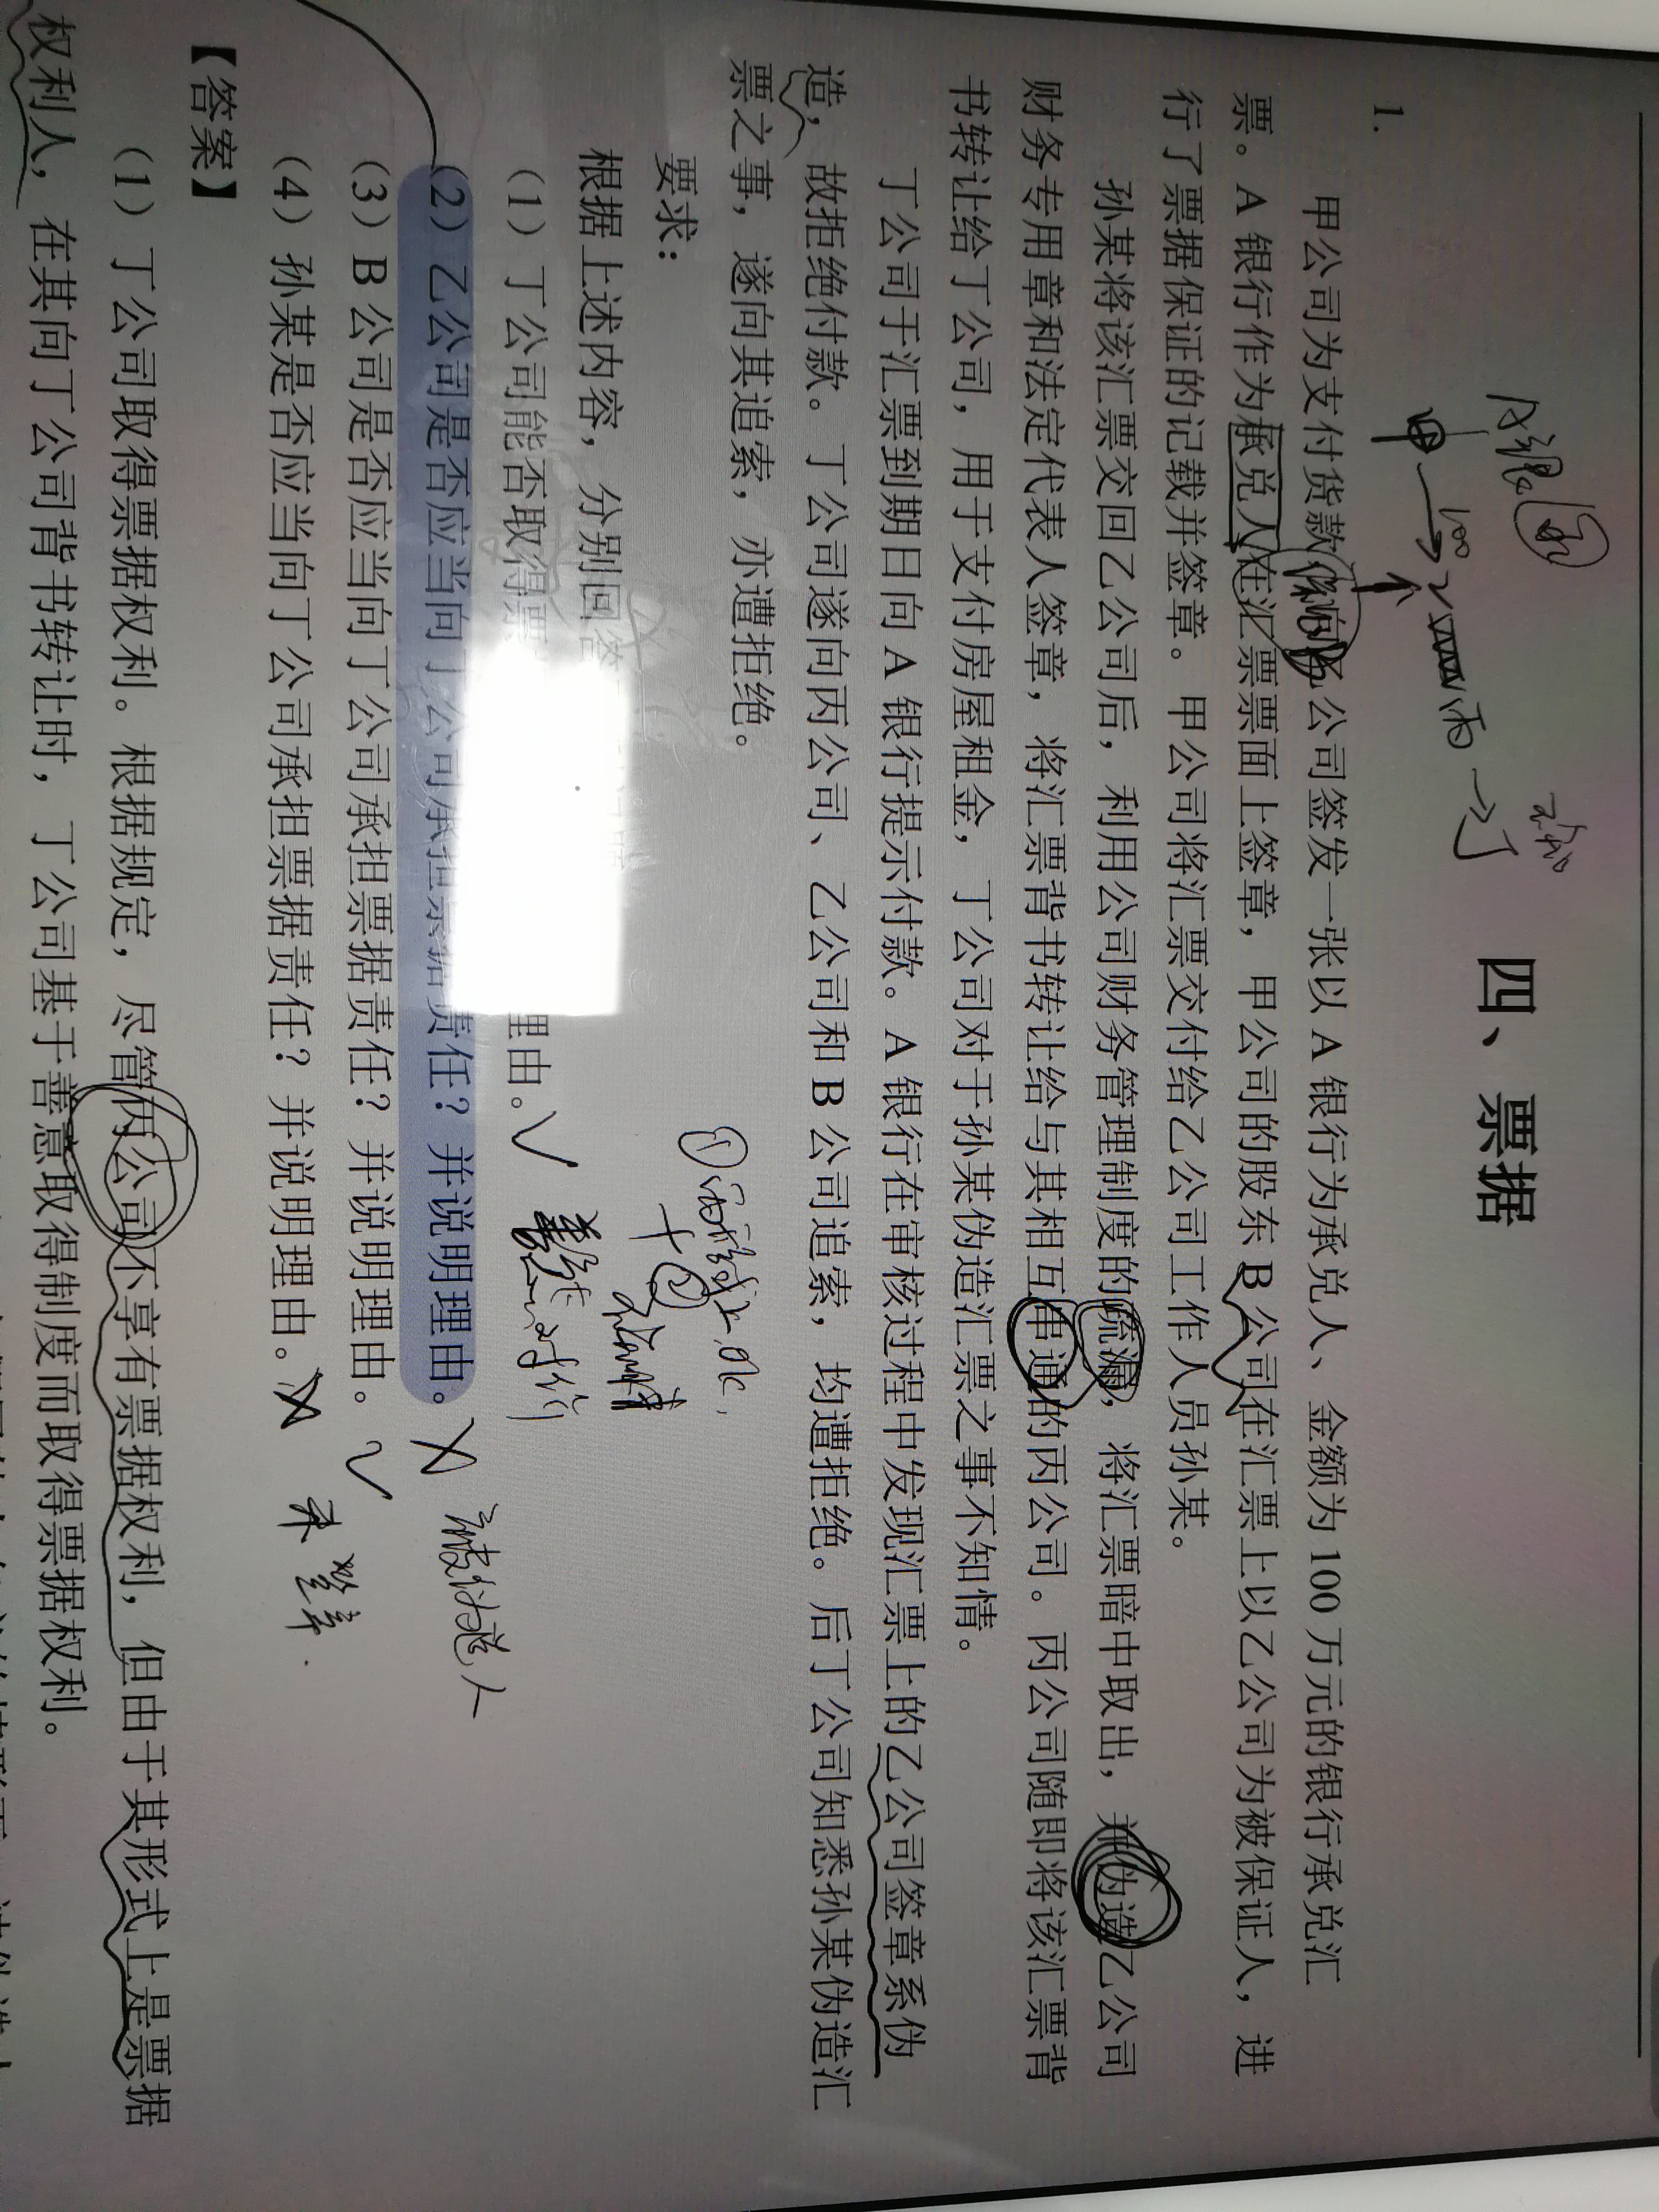 A银行
甲 100 乙 丙 丁
保证
四、票据
1.
甲公司为支付货款，向乙公司签发一张以 A 银行为承兑人、金额为 100 万元的银行承兑汇
票。A 银行作为承兑人在汇票票面上签章，甲公司的股东 B 公司在汇票上以乙公司为被保证人，进
行了票据保证的记载并签章。甲公司将汇票交付给乙公司工作人员孙某。
孙某将该汇票交回乙公司后，利用公司财务管理制度的疏漏，将汇票暗中取出，并伪造乙公司
财务专用章和法定代表人签章，将汇票背书转让给与其相互串通的丙公司。丙公司随即将该汇票背
书转让给丁公司，用于支付房屋租金，丁公司对于孙某伪造汇票之事不知情。
丁公司于汇票到期日向 A 银行提示付款。A 银行在审核过程中发现汇票上的乙公司签章系伪
造，故拒绝付款。丁公司遂向丙公司、乙公司和 B 公司追索，均遭拒绝。后丁公司知悉孙某伪造汇
票之事，遂向其追索，亦遭拒绝。
要求：
根据上述内容，分别回答
（1）丁公司能否取得票 理由。
（2）乙公司是否应当向丁公司承担票据责任？并说明理由。 被伪造人
（3）B 公司是否应当向丁公司承担票据责任？并说明理由。
（4）孙某是否应当向丁公司承担票据责任？并说明理由。 未签章.
【答案】
（1）丁公司取得票据权利。根据规定，尽管丙公司不享有票据权利，但由于其形式上是票据
权利人，在其向丁公司背书转让时，丁公司基于善意取得制度而取得票据权利。